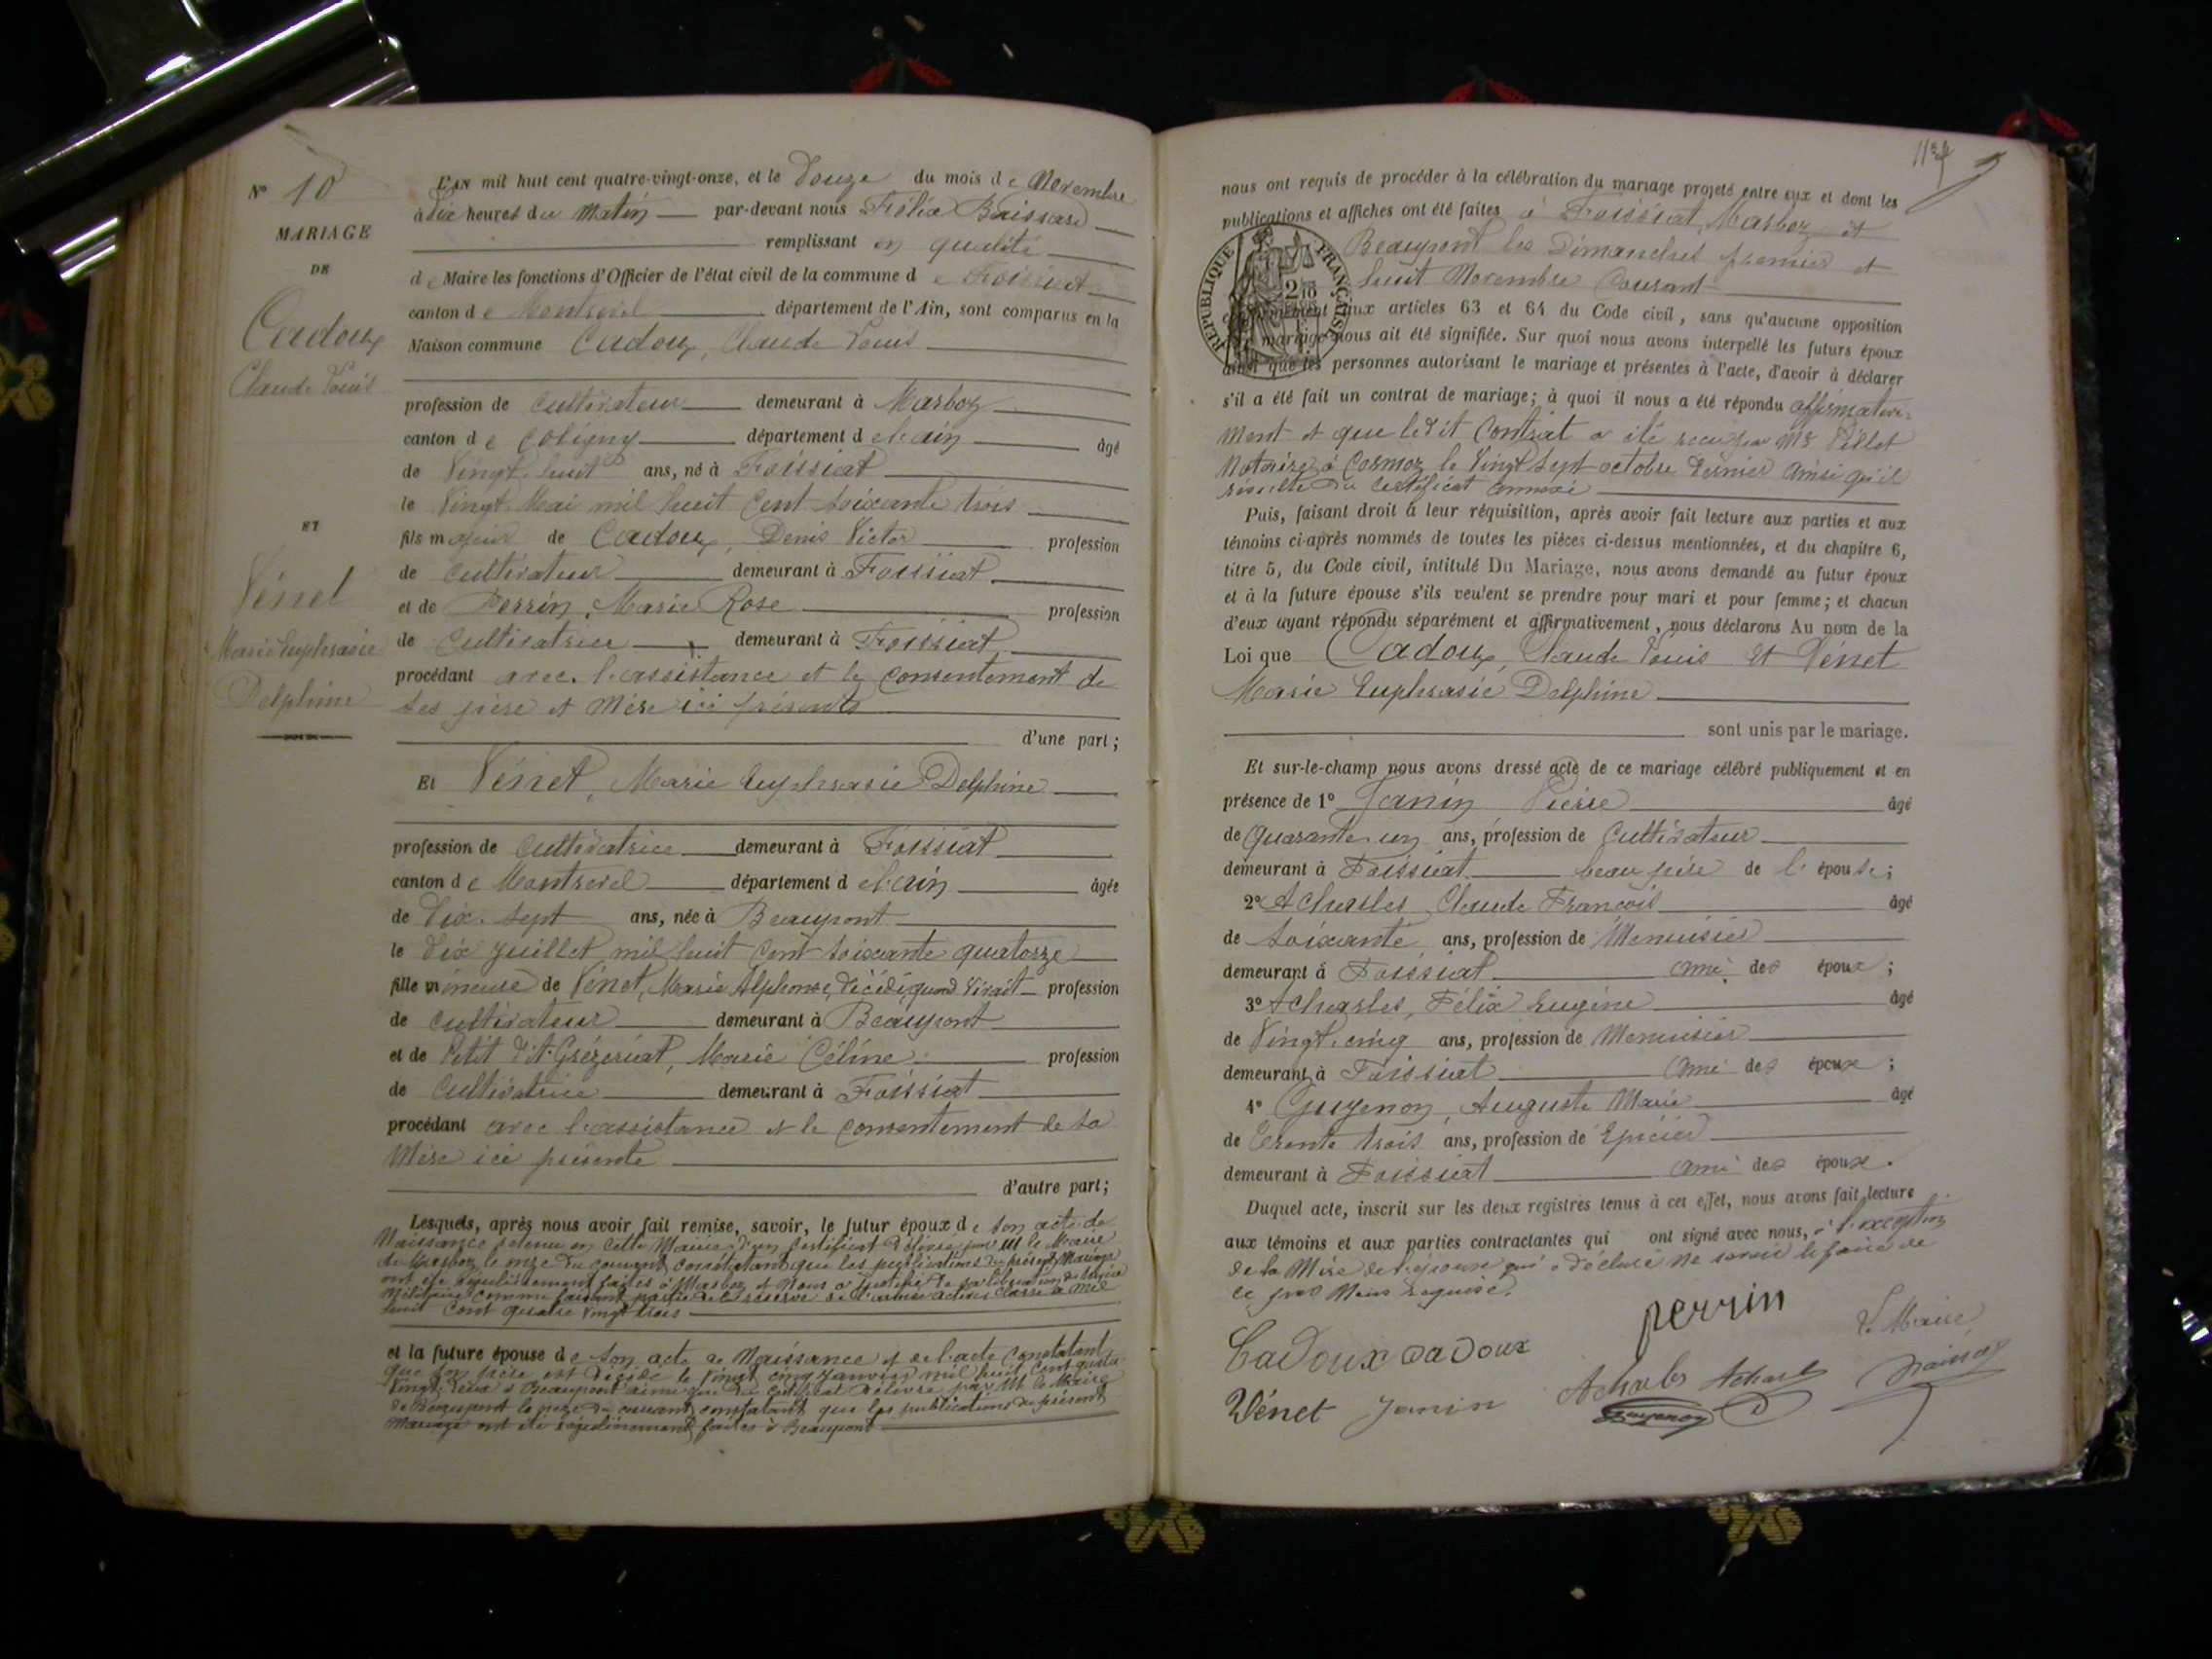 N° 10
MARIAGE
DE
Cadoux
Claude Louis
ET
Vénet
Marie Euphrasie
Delphine
L'AN mil huit cent quatre-vingt-onze, et le Douze du mois de Novembre
à Dix heures du Matin par-devant nous Félix Buissard
remplissant en qualité
de Maire les fonctions d'Officier de l'état civil de la commune de Foissiat
canton de Montrevel département de l'Ain, sont comparus en la
Maison commune Cadoux, Claude Louis
profession de Cultivateur demeurant à Marboz
canton de Coligny département de l'ain âgé
de Vingt huit ans, né à Foissiat
le Vingt Mai mil huit Cent soixante trois
fils majeur de Cadoux, Denis Victor profession
de Cultivateur demeurant à Foissiat
et de Perrin, Marie Rose profession
de Cultivatrice demeurant à Foissiat
procédant avec l'assistance et le Consentement de
ses père et Mère ici présents
d'une part ;
Et Vénet, Marie Euphrasie Delphine
profession de Cultivatrice demeurant à Foissiat
canton de Montrevel département de l'ain âgée
de Dix-sept ans, née à Beaupont
le Dix Juillet mil huit Cent soixante quatorze
fille mineure de Vénet, Marie Alphonse, Décédé, quand Vivait profession
de Cultivateur demeurant à Beaupont
et de Petit dit Grézeriat, Marie Céline profession
de Cultivatrice demeurant à Foissiat
procédant avec l'assistance et le Consentement de sa
Mère ici présente
d'autre part ;
Lesquels, après nous avoir fait remise, savoir, le futur époux de son acte de
Naissance retenu en Cette Mairie, d'un Certificat Délivré par M le Maire
de Marboz le onze du courant Constatant que les publications du présent Mariage
ont été régulièrement faites à Marboz et Nous a justifié de sa libération du service
Militaire Comme faisant partie de la réserve de l'armée active Classe de Mil
huit Cent quatre Vingt trois
et la future épouse de son acte de Naissance et de l'acte Constatant
que son père est Décédé le Vingt Cinq Janvier mil huit Cent quatre
Vingt Deux à Beaupont ainsi que du Certificat Délivré par M le Maire
de Beaupont le onze du courant constatant que les publications du présent
Mariage ont été régulièrement faites à Beaupont
nous ont requis de procéder à la célébration du mariage projeté entre eux et dont les
publications et affiches ont été faites à Foissiat, Marboz et
Beaupont les Dimanches premier et
huit Novembre Courant
RÉPUBLIQUE FRANÇAISE
aux articles 63 et 64 du Code civil, sans qu'aucune opposition
mariage nous ait été signifiée. Sur quoi nous avons interpellé les futurs époux
ainsi que les personnes autorisant le mariage et présentes à l'acte, d'avoir à déclarer
s'il a été fait un contrat de mariage ; à quoi il nous a été répondu affirmative-
ment et que ledit Contrat a été reçu par Me Pillet
Notaire à Cormoz le Vingt sept octobre Dernier Ainsi qu'il
résulte du Certificat annexé
Puis, faisant droit à leur réquisition, après avoir fait lecture aux parties et aux
témoins ci-après nommés de toutes les pièces ci-dessus mentionnées, et du chapitre 6,
titre 5, du Code civil, intitulé Du Mariage, nous avons demandé au futur époux
et à la future épouse s'ils veulent se prendre pour mari et pour femme ; et chacun
d'eux ayant répondu séparément et affirmativement, nous déclarons Au nom de la
Loi que Cadoux, Claude Louis Et Vénet
Marie Euphrasie Delphine
sont unis par le mariage.
Et sur-le-champ nous avons dressé acte de ce mariage célébré publiquement et en
présence de 1° Janin Pierre âgé
de Quarante un ans, profession de Cultivateur
demeurant à Foissiat beau père de l'épouse ;
2° Acharles Claude François âgé
de Soixante ans, profession de Menuisier
demeurant à Foissiat ami des époux ;
3° Acharles, Félix Eugène âgé
de Vingt-cinq ans, profession de Menuisier
demeurant à Foissiat ami des époux ;
4° Guyenon, Auguste Marie âgé
de Trente trois ans, profession de Epicier
demeurant à Foissiat ami des époux.
Duquel acte, inscrit sur les deux registres tenus à cet effet, nous avons fait lecture
aux témoins et aux parties contractantes qui ont signé avec nous, à l'exception
de la Mère de l'épouse qui a Déclaré Ne savoir le faire de
ce par Nous requise.
Cadoux Cadoux perrin Le Maire
Vénet Janin Acharles Acharles Buissard
Guyenon